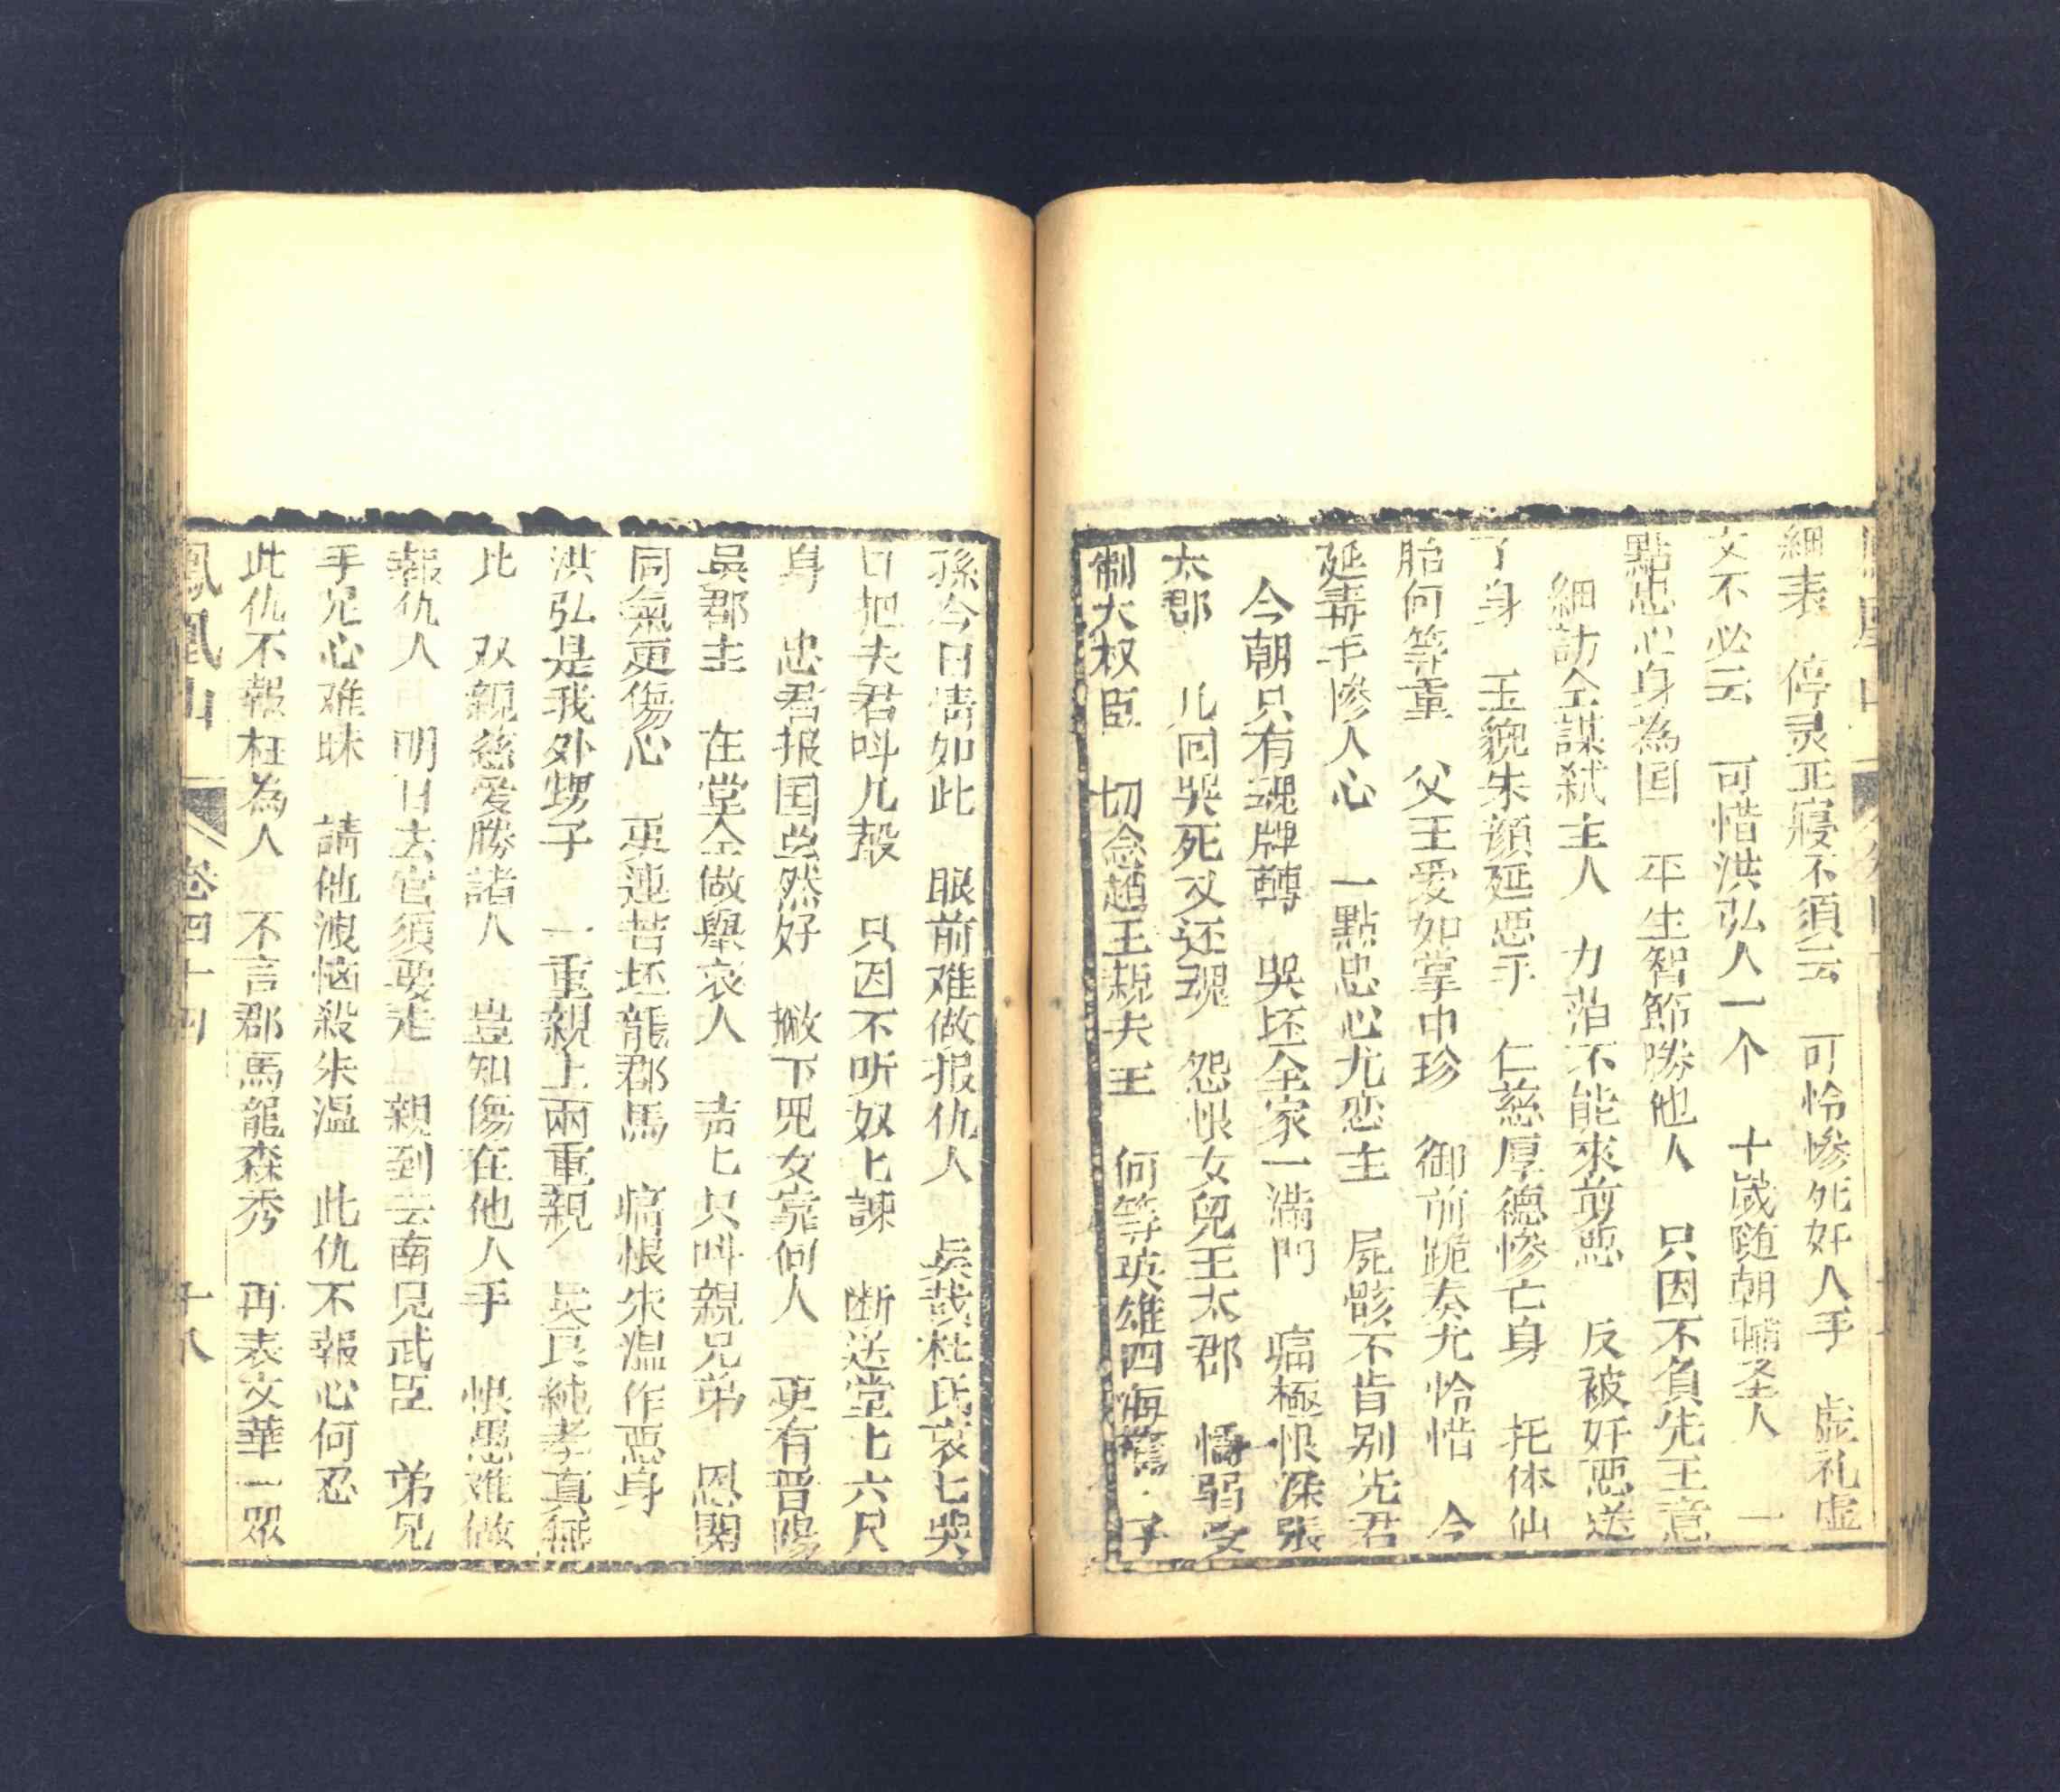 細表　停灵正寢不須云　可怜慘死奸人手　虛礼虛
文不必云　可惜洪弘人一个　十歲随朝輔圣人　一
點忠心身為国　平生智節勝他人　只因不負先王意
細訪仝謀弒主人　力泊不能來剪惡　反被奸惡送
了身　玉貌朱顔延惡手　仁慈厚德慘亡身　托体仙
胎何等重　父王爱如掌中珍　御前跪奏尤怜惜　今
延毒手慘人心　一點忠心尤恋主　屍骸不肯别先君
今朝只有魂牌轉　哭坯全家一满門　痛極恨深張
太郡　几回哭死又还魂　怨恨女兒王太郡　懦弱受
制大叔臣　切念趙王親夫主　何等英雄四海驚　子
孫今日情如此　眼前难做报仇人　哀哉杜氏哀七哭
日把夫君呌几殸　只因不听奴七諫　断送堂七六尺
身　忠君报国虽然好　撇下児女靠何人　更有晋陽
吳郡主　在堂仝做舉哀人　声七只呌親兄弟　恩関
同氣更傷心　更連苦坯龍郡馬　痛恨朱温作惡身
洪弘是我外甥子　一重親上兩重親　吳良純孝真無
比　双親慈爱勝諸人　豈知傷在他人手　恨愚难做
報仇人　明日去官須要走　親到云南見武臣　弟兄
手足心难昧　請他洩恼殺朱温　此仇不報心何忍
此仇不報枉為人　不言郡馬龍森秀　再表文華一眾
鳳凰山　卷四十四　十八